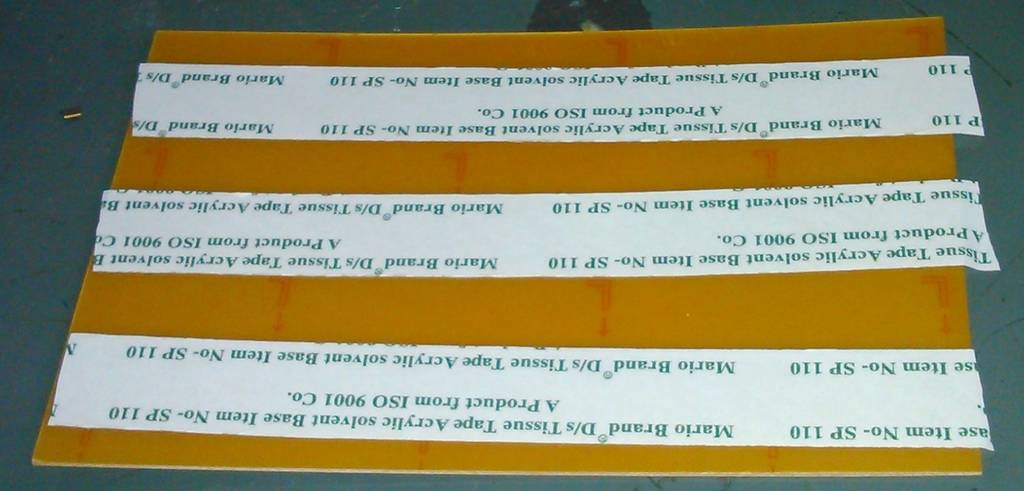 ase Item No- SP 110 Mario Brand® D/s Tissue Tape Acrylic solvent Base Item No- SP 110
A Product from ISO 9001 Co.
ase Item No- SP 110 Mario Brand® D/s Tissue Tape Acrylic solvent Base Item No- SP 110
Tissue Tape Acrylic solvent Base Item No- SP 110 Mario Brand® D/s Tissue Tape Acrylic solvent B
A Product from ISO 9001 Co. A Product from ISO 9001 Co
Tissue Tape Acrylic solvent Base Item No- SP 110 Mario Brand® D/s Tissue Tape Acrylic solvent Ba
P 110 Mario Brand® D/s Tissue Tape Acrylic solvent Base Item No- SP 110 Mario Brand® D/s
A Product from ISO 9001 Co.
P 110 Mario Brand® D/s Tissue Tape Acrylic solvent Base Item No- SP 110 Mario Brand® D/s T